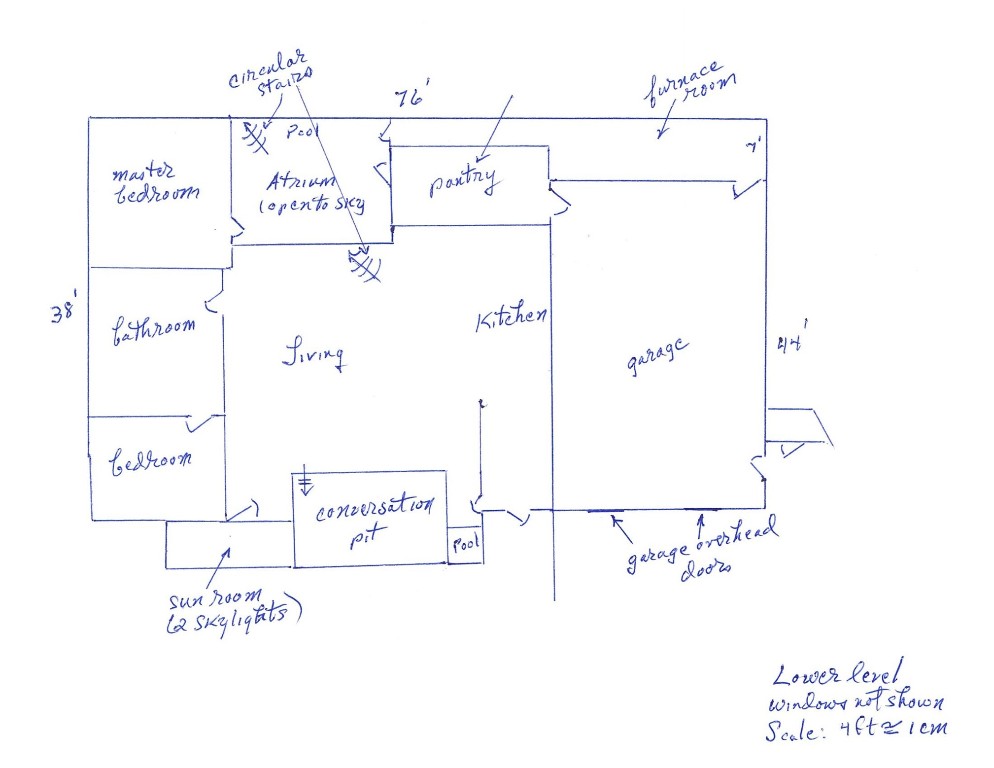 circular
stairs
76'
furnace
room
Pool
7'
master
bedroom
Atrium
(open to sky
pantry
38'
bathroom
Living
Kitchen
garage
44'
bedroom
conversation
pit
Pool
garage overhead
doors
sun room
(2 skylights)
Lower level
windows not shown
Scale: 4ft ≅ 1cm